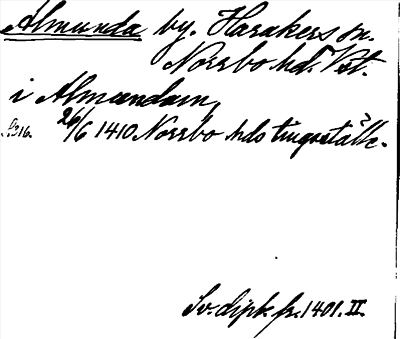 Ålmunda by. Harakers sn.
Norrbo hd. Vst.
i Almundam,
s. 216. 26/6 1410 Norrbo hds tingställe.
Sv. dipl. fr. 1401. II.